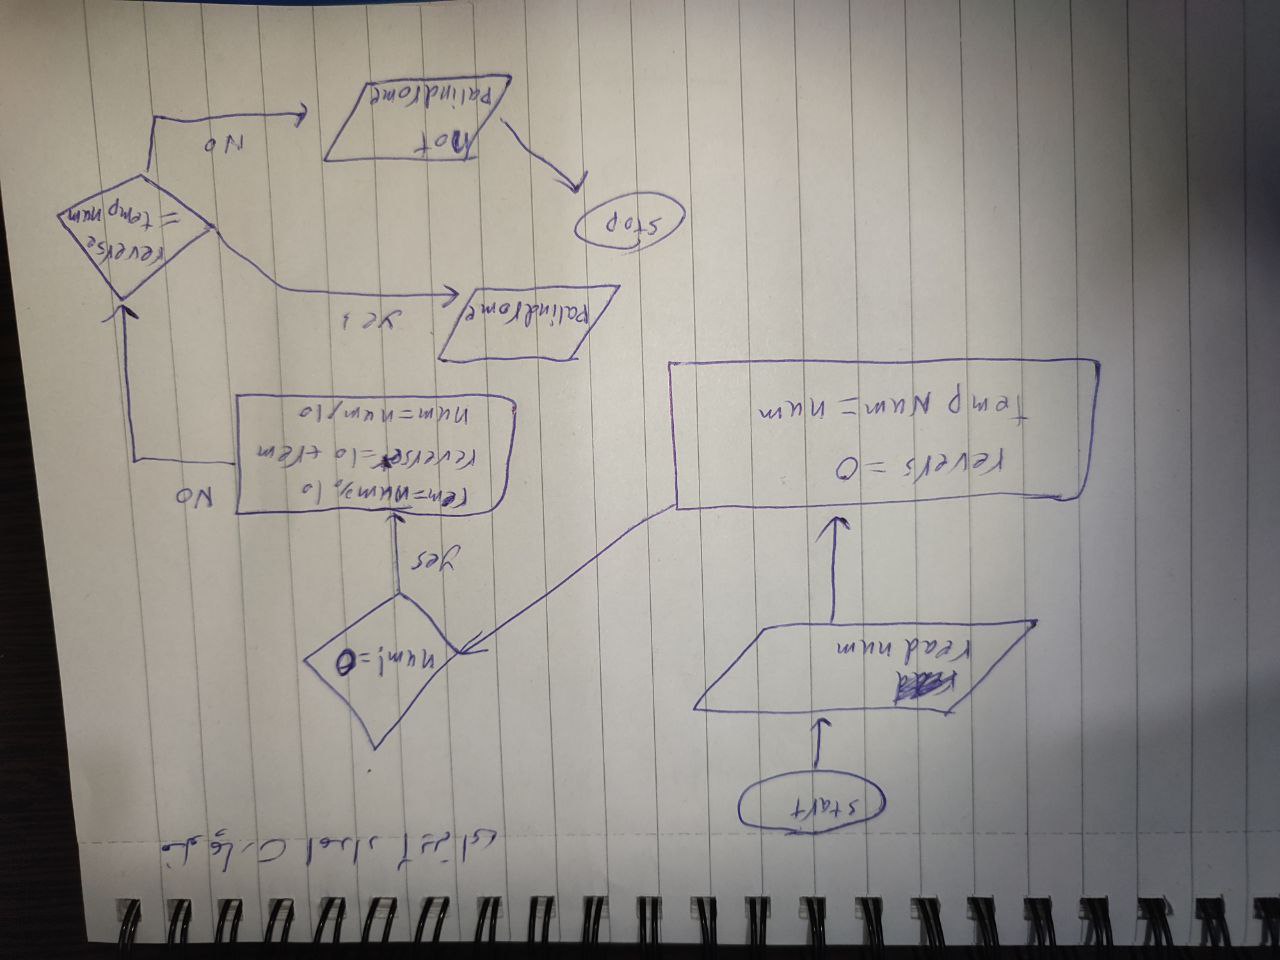 start
read num
revers = 0
temp Num = num
num! = 0
yes
rem=num% 10
reverse=10 +rem
num=num/10
NO
reverse
= temp num
yes
Palindrome
NO
not
Palindrome
stop